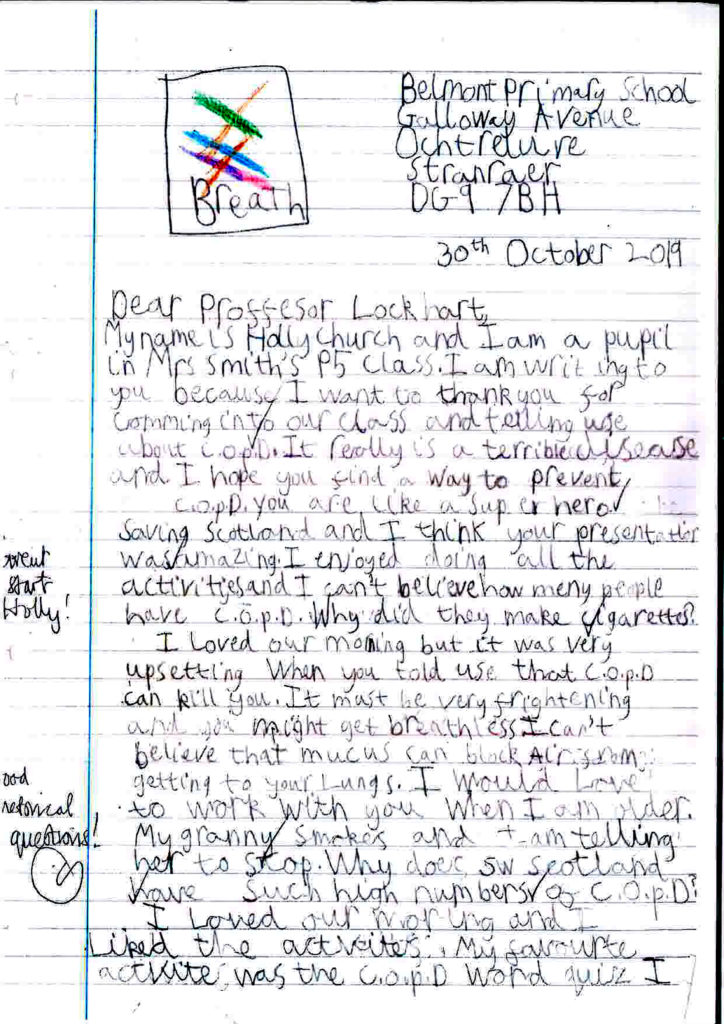 Breath
Belmont Primary School
Galloway Avenue
Ochtrelure
Stranraer
DG9 7BH
30th October 2019
Dear Proffesor Lockhart,
My name is Holly Church and I am a pupil
in Mrs Smith's P5 class. I am writing to
you because I want to thank you for
comming into our class and telling use
about C.O.p.D. It really is a terrible disease
and I hope you find a way to prevent
C.O.p.D. you are like a super hero
saving Scotland and I think your presentation
was amazing. I enjoyed doing all the
activitys and I can't believe how meny people
have C.O.p.D. Why did they make cigarettes?
Great
start
Holly!
I Loved our morning but it was very
upsetting When you told use that C.O.p.D
can kill you. It must be very frightening
and you might get breathless I can't
believe that mucus can block Air from
getting to your Lungs. I would Love
to work with you when I am older.
My granny smokes and I am telling
her to stop. Why does sw scotland
have such high numbers of C.O.p.D?
questions!
I Loved our moring and I
Liked the activites. My favourite
activite, was the C.O.p.D word quiz I